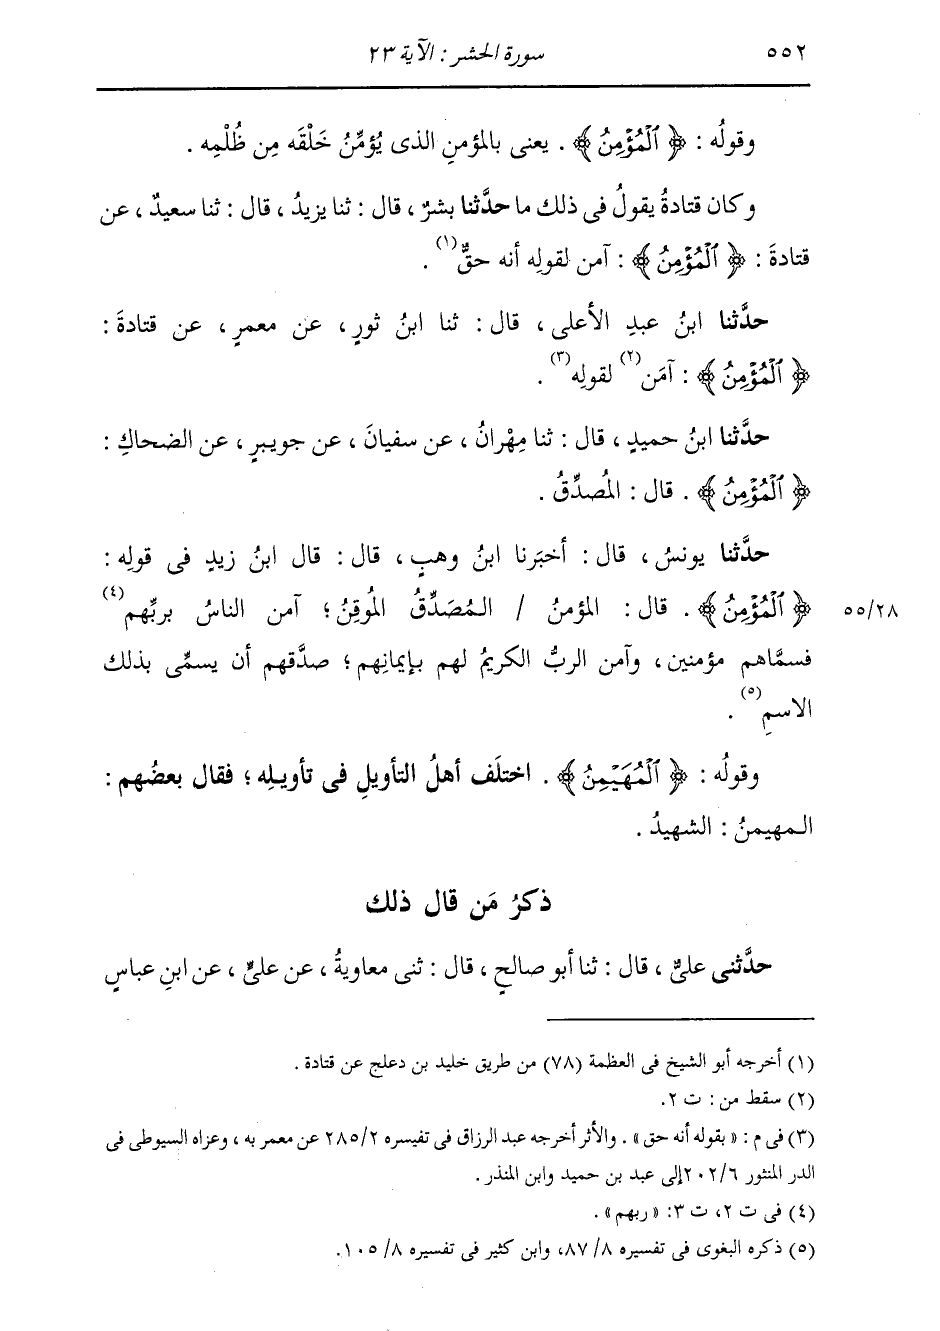 ٥٥٢ سورة الحشر : الآية ٢٣
وقولُه : ﴿ ٱلْمُؤْمِنُ ﴾ . يعنى بالمؤمنِ الذى يُؤمِّنُ خَلْقَه مِن ظُلْمِه .
وكان قتادةُ يقولُ فى ذلك ما حدَّثنا بشرٌ ، قال : ثنا يزيدُ ، قال : ثنا سعيدٌ ، عن
قتادةَ : ﴿ ٱلْمُؤْمِنُ ﴾ : آمن لقولِه أنه حقٌّ(١) .
حدَّثنا ابنُ عبدِ الأعلى ، قال : ثنا ابنُ ثورٍ ، عن معمرٍ ، عن قتادةَ :
﴿ ٱلْمُؤْمِنُ ﴾ : آمَن(٢) لقولِه(٣) .
حدَّثنا ابنُ حميدٍ ، قال : ثنا مِهْرانُ ، عن سفيانَ ، عن جويبرٍ ، عن الضحاكِ :
﴿ ٱلْمُؤْمِنُ ﴾ . قال : المُصدِّقُ .
حدَّثنا يونسُ ، قال : أخبَرنا ابنُ وهبٍ ، قال : قال ابنُ زيدٍ فى قولِه :
٥٥/٢٨ ﴿ ٱلْمُؤْمِنُ ﴾ . قال : المؤمنُ / المُصَدِّقُ المُوقِنُ ؛ آمن الناسُ بربِّهم(٤)
فسمَّاهم مؤمنين ، وآمن الربُّ الكريمُ لهم بإيمانِهم ؛ صدَّقهم أن يسمِّى بذلك
الاسمِ(٥) .
وقولُه : ﴿ ٱلْمُهَيْمِنُ ﴾ . اختلَف أهلُ التأويلِ فى تأويلِه ؛ فقال بعضُهم :
المهيمنُ : الشهيدُ .
ذكرُ مَن قال ذلك
حدَّثنى علىٌّ ، قال : ثنا أبو صالحٍ ، قال : ثنى معاويةُ ، عن علىٍّ ، عن ابنِ عباسٍ
(١) أخرجه أبو الشيخ فى العظمة (٧٨) من طريق خليد بن دعلج عن قتادة .
(٢) سقط من : ت ٢.
(٣) فى م : « بقوله أنه حق » . والأثر أخرجه عبد الرزاق فى تفيسره ٢٨٥/٢ عن معمر به ، وعزاه السيوطى فى
الدر المنثور ٢٠٢/٦ إلى عبد بن حميد وابن المنذر .
(٤) فى ت ٢، ت ٣: « ربهم » .
(٥) ذكره البغوى فى تفسيره ٨/ ٨٧، وابن كثير فى تفسيره ٨/ ١٠٥.